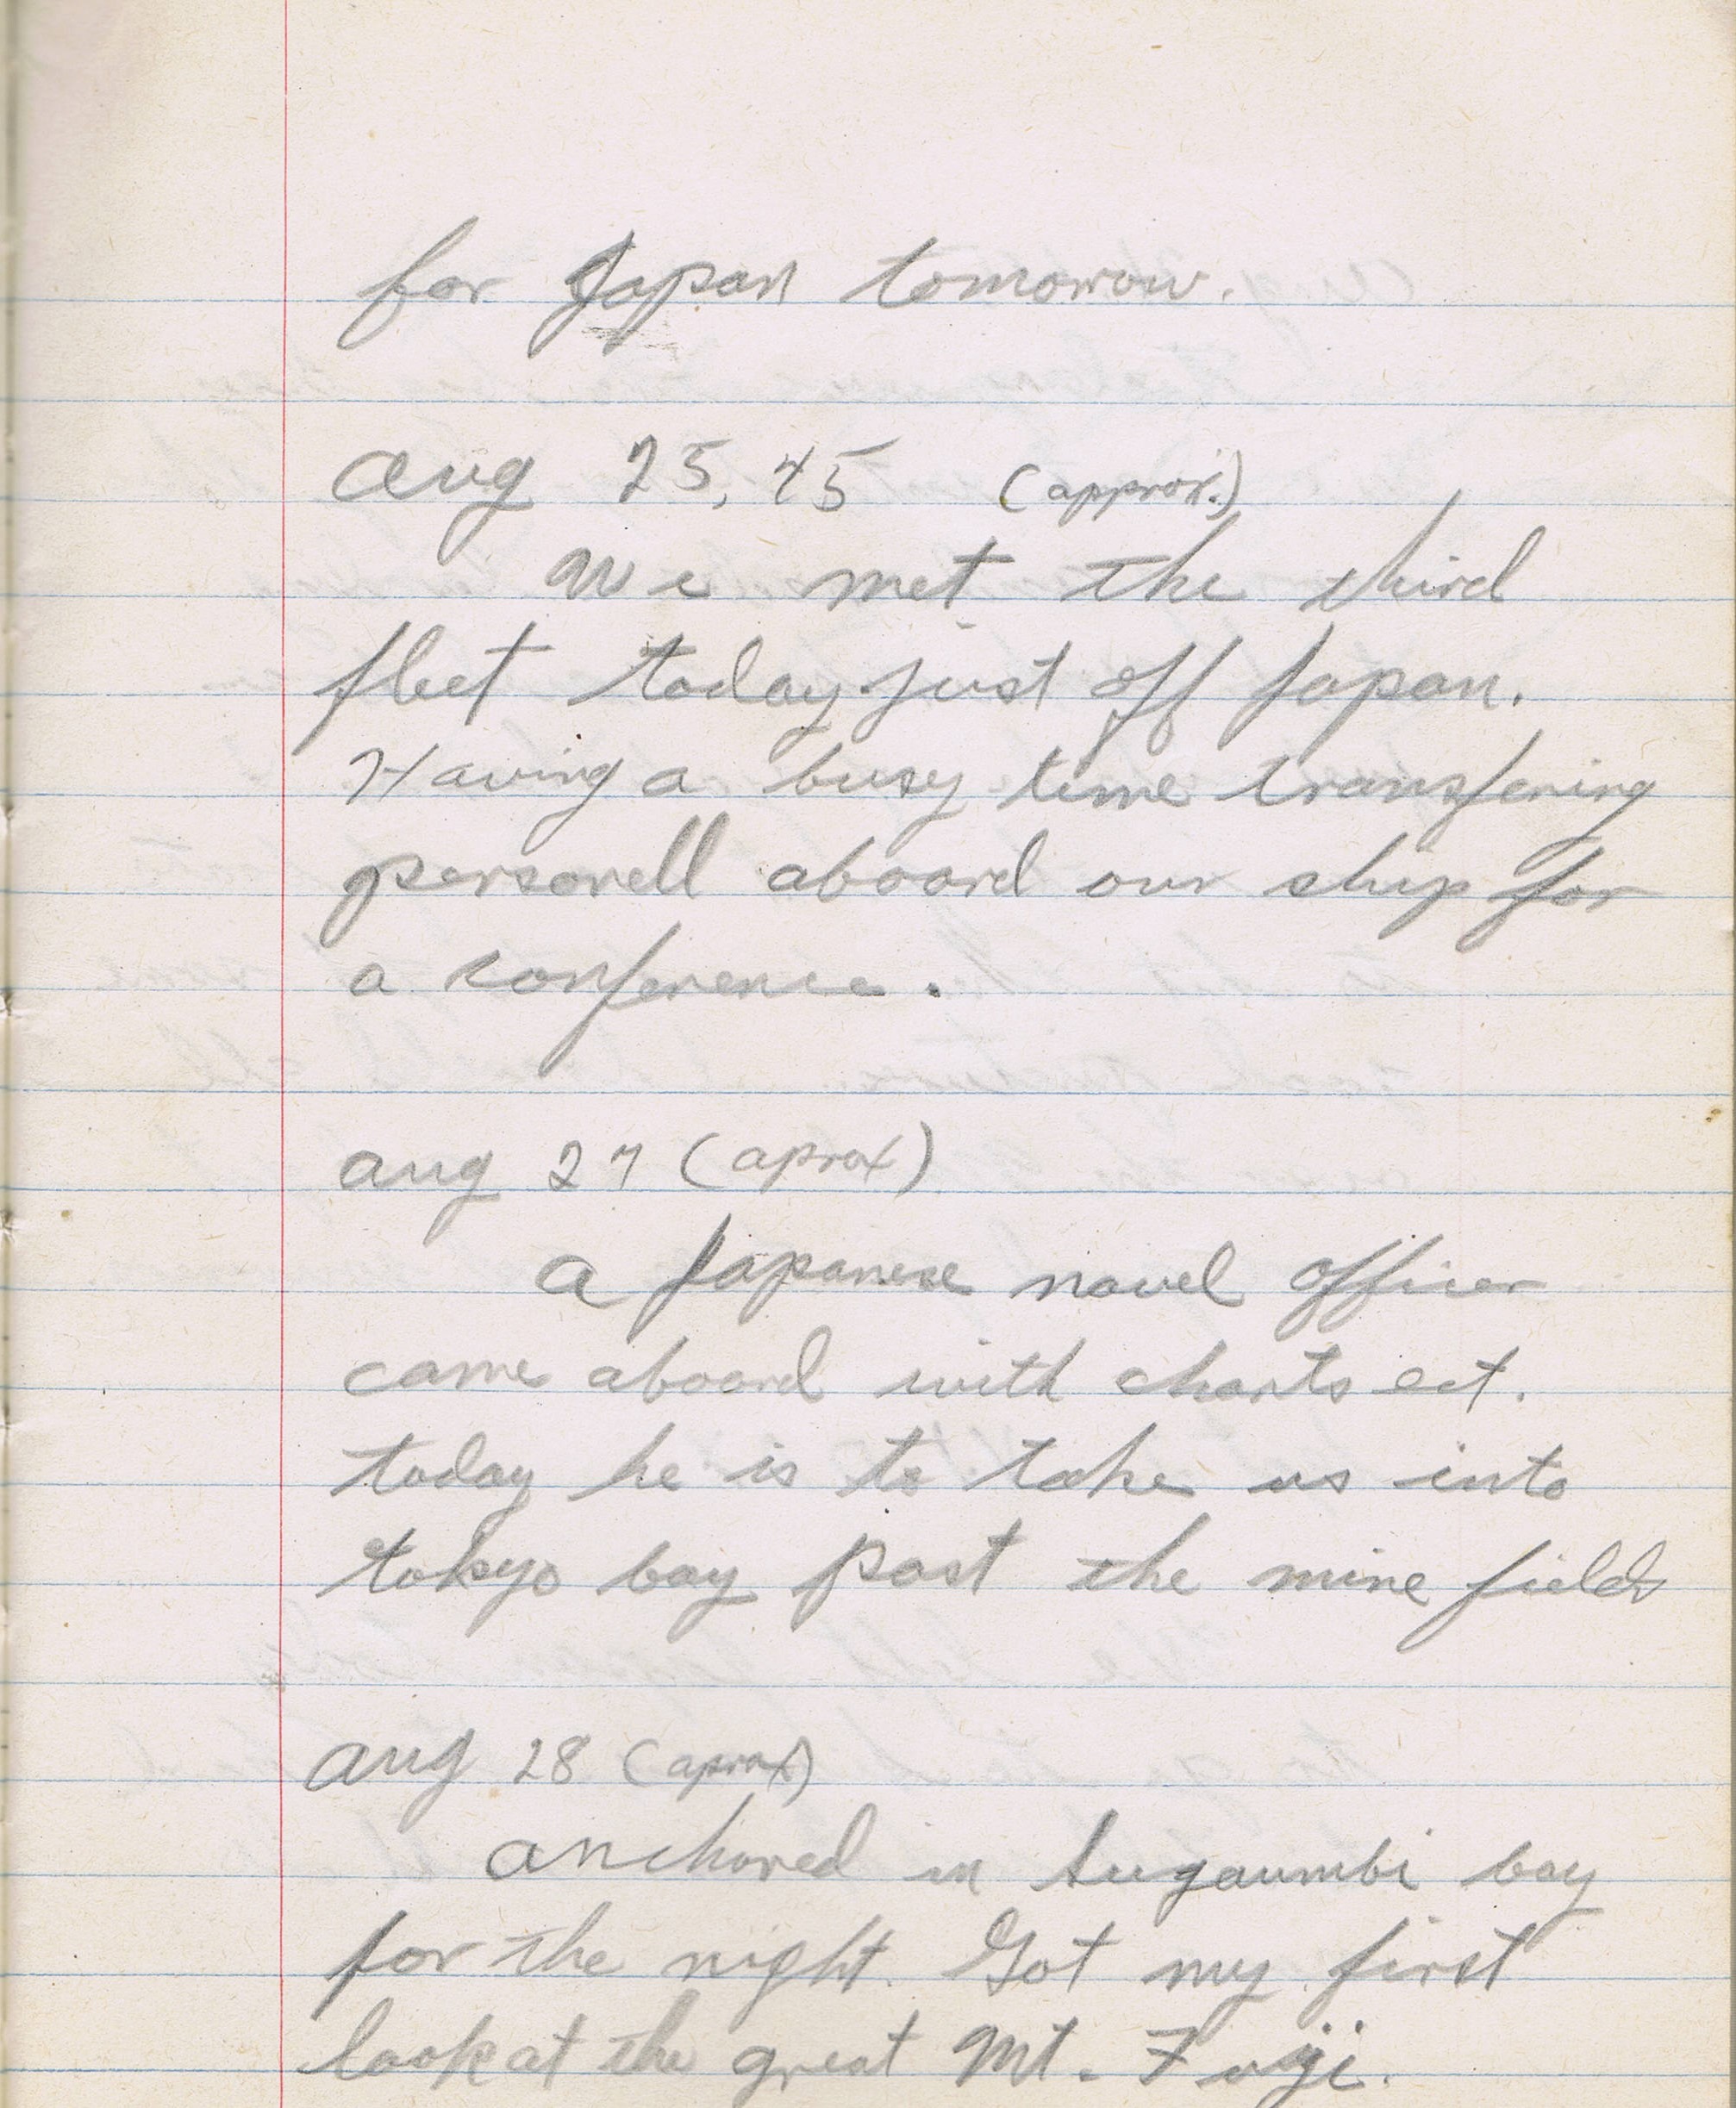 for Japan tomorow.
Aug 25, 45 (approx.)
We met the third
fleet today just off Japan.
Having a busy time transfering
personell aboard our ship for
a conference.
Aug 27 (aprox)
A Japanese navel officer
came aboard with charts ect.
today he is to take us into
tokyo bay past the mine fields
Aug 28 (aprox)
Anchored in Sugaumbi bay
for the night. Got my first
look at the great Mt. Fuji.